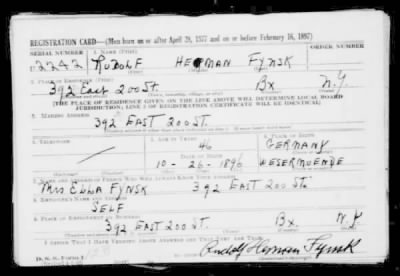 REGISTRATION CARD—(Men born on or after April 28, 1877 and on or before February 16, 1897)
SERIAL NUMBER 1. NAME (Print) ORDER NUMBER
U 2242 RUDOLF HERMAN FYNSK
2. PLACE OF RESIDENCE (Print)
392 East 200 St. Bx. N.Y.
(THE PLACE OF RESIDENCE GIVEN ON THE LINE ABOVE WILL DETERMINE LOCAL BOARD
JURISDICTION; LINE 2 OF REGISTRATION CERTIFICATE WILL BE IDENTICAL)
3. MAILING ADDRESS
392 EAST 200 ST.
4. TELEPHONE 5. AGE IN YEARS 6. PLACE OF BIRTH
46 GERMANY
DATE OF BIRTH
10-26-1896 WESERMUENDE
7. NAME AND ADDRESS OF PERSON WHO WILL ALWAYS KNOW YOUR ADDRESS
Mrs ELLA FYNSK 392 EAST 200 ST.
8. EMPLOYER'S NAME AND ADDRESS
SELF
9. PLACE OF EMPLOYMENT OR BUSINESS
392 EAST 200 ST. Bx. N.Y
I AFFIRM THAT I HAVE VERIFIED ABOVE ANSWERS AND THAT THEY ARE TRUE.
D. S. S. Form 1 Rudolf Herman Fynsk